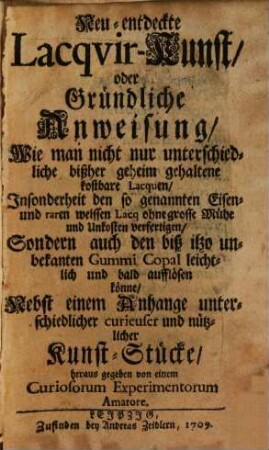 Neu-entdeckte
Lacqvir-Kunst/
oder
Gründliche
Anweisung/
Wie man nicht nur unterschied-
liche bißher geheim gehaltene
kostbare Lacquen/
Insonderheit den so genannten Eisen-
und raren weissen Lacq ohne grosse Mühe
und Unkosten verfertigen/
Sondern auch den biß itzo un-
bekanten Gummi Copal leicht-
lich und bald aufflösen
könne/
Nebst einem Anhange unter-
schiedlicher curieuser und nütz-
licher
Kunst-Stücke/
heraus gegeben von einem
Curiosorum Experimentorum
Amatore.
LEIPZIG,
Zufinden bey Andreas Zeidlern, 1709.